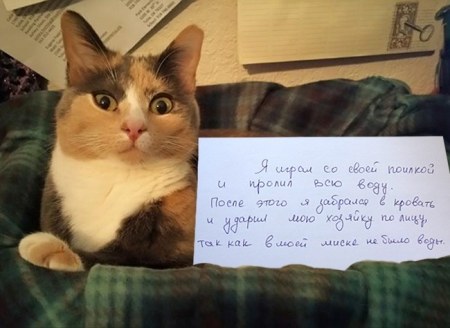 Я играл со своей поилкой
и пролил всю воду.
После этого я забрался в кровать
и ударил мою хозяйку по лицу,
так как в моей миске не было воды.